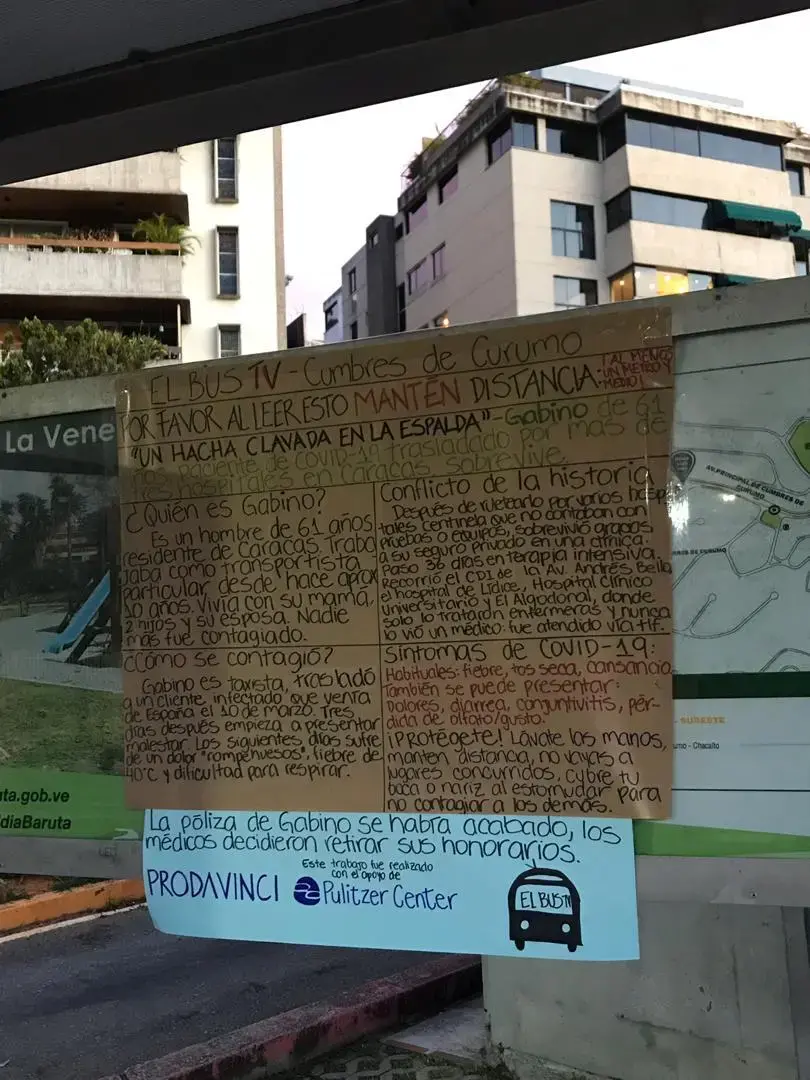 EL BUS TV - Cumbres de Curumo
POR FAVOR AL LEER ESTO MANTÉN DISTANCIA
¡AL MENOS
UN METRO Y
MEDIO!
"UN HACHA CLAVADA EN LA ESPALDA" - Gabino de 61
años, paciente de COVID-19 trasladado por más de
tres hospitales en Caracas, sobrevive
¿Quién es Gabino?
Es un hombre de 61 años
residente de Caracas. Traba
jaba como transportista
particular desde hace aprox
10 años. Vivía con su mamá,
2 hijos y su esposa. Nadie
más fue contagiado.
¿Cómo se contagió?
Gabino es taxista, trasladó
a un cliente, infectado que venía
de España el 10 de marzo. Tres
días después empieza a presentar
malestar. Los siguientes días sufre
de un dolor "rompehuesos", fiebre de
40°C y dificultad para respirar.
Conflicto de la historia
Después de ruletearlo por varios hospi
tales centinela que no contaban con
pruebas o equipos, sobrevivió gracias
a su seguro privado en una clínica.
Pasó 36 días en terapia intensiva.
Recorrió el CDI de la Av. Andrés Bello
el hospital de Lídice, Hospital Clínico
Universitario y El Algodonal, donde
solo lo trataron enfermeras y nunca
lo vió un médico: fue atendido vía tlf.
Síntomas de COVID-19:
Habituales: fiebre, tos seca, cansancio
También se puede presentar:
Dolores, diarrea, conjuntivitis, pér-
dida de olfato/gusto.
¡Protégete! Lávate las manos,
mantén distancia, no vayas a
lugares concurridos, cubre tu
boca o nariz al estornudar para
no contagiar a los demás.
La póliza de Gabino se había acabado, los
médicos decidieron retirar sus honorarios.
Este trabajo fue realizado
con el apoyo de
PRODAVINCI Pulitzer Center
EL BUS TV
La Vene
uta.gob.ve
ldiaBaruta
AV. PRINCIPAL DE CUMBRES DE
CURUMO
SURESTE
umo - Chacaíto